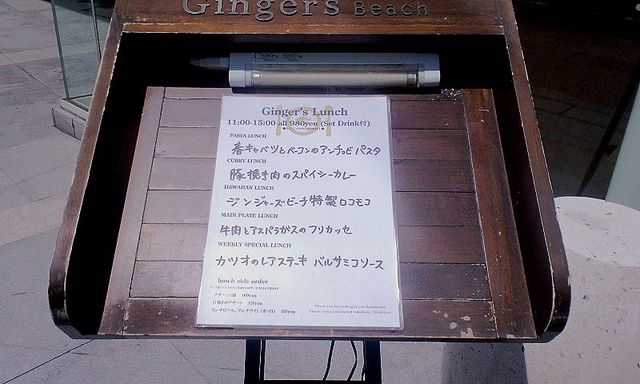 Gingers Beach
Ginger's Lunch
11:00-15:00 all 980yen (Set Drink付)
PASTA LUNCH
春キャベツとベーコンのアンチョビパスタ
CURRY LUNCH
豚挽き肉のスパイシーカレー
HAWAIIAN LUNCH
ジンジャーズビーチ特製ロコモコ
MAIN PLATE LUNCH
牛肉とアスパラガスのフリカッセ
WEEKLY SPECIAL LUNCH
カツオのレアステーキ バルサミコソース
lunch side order